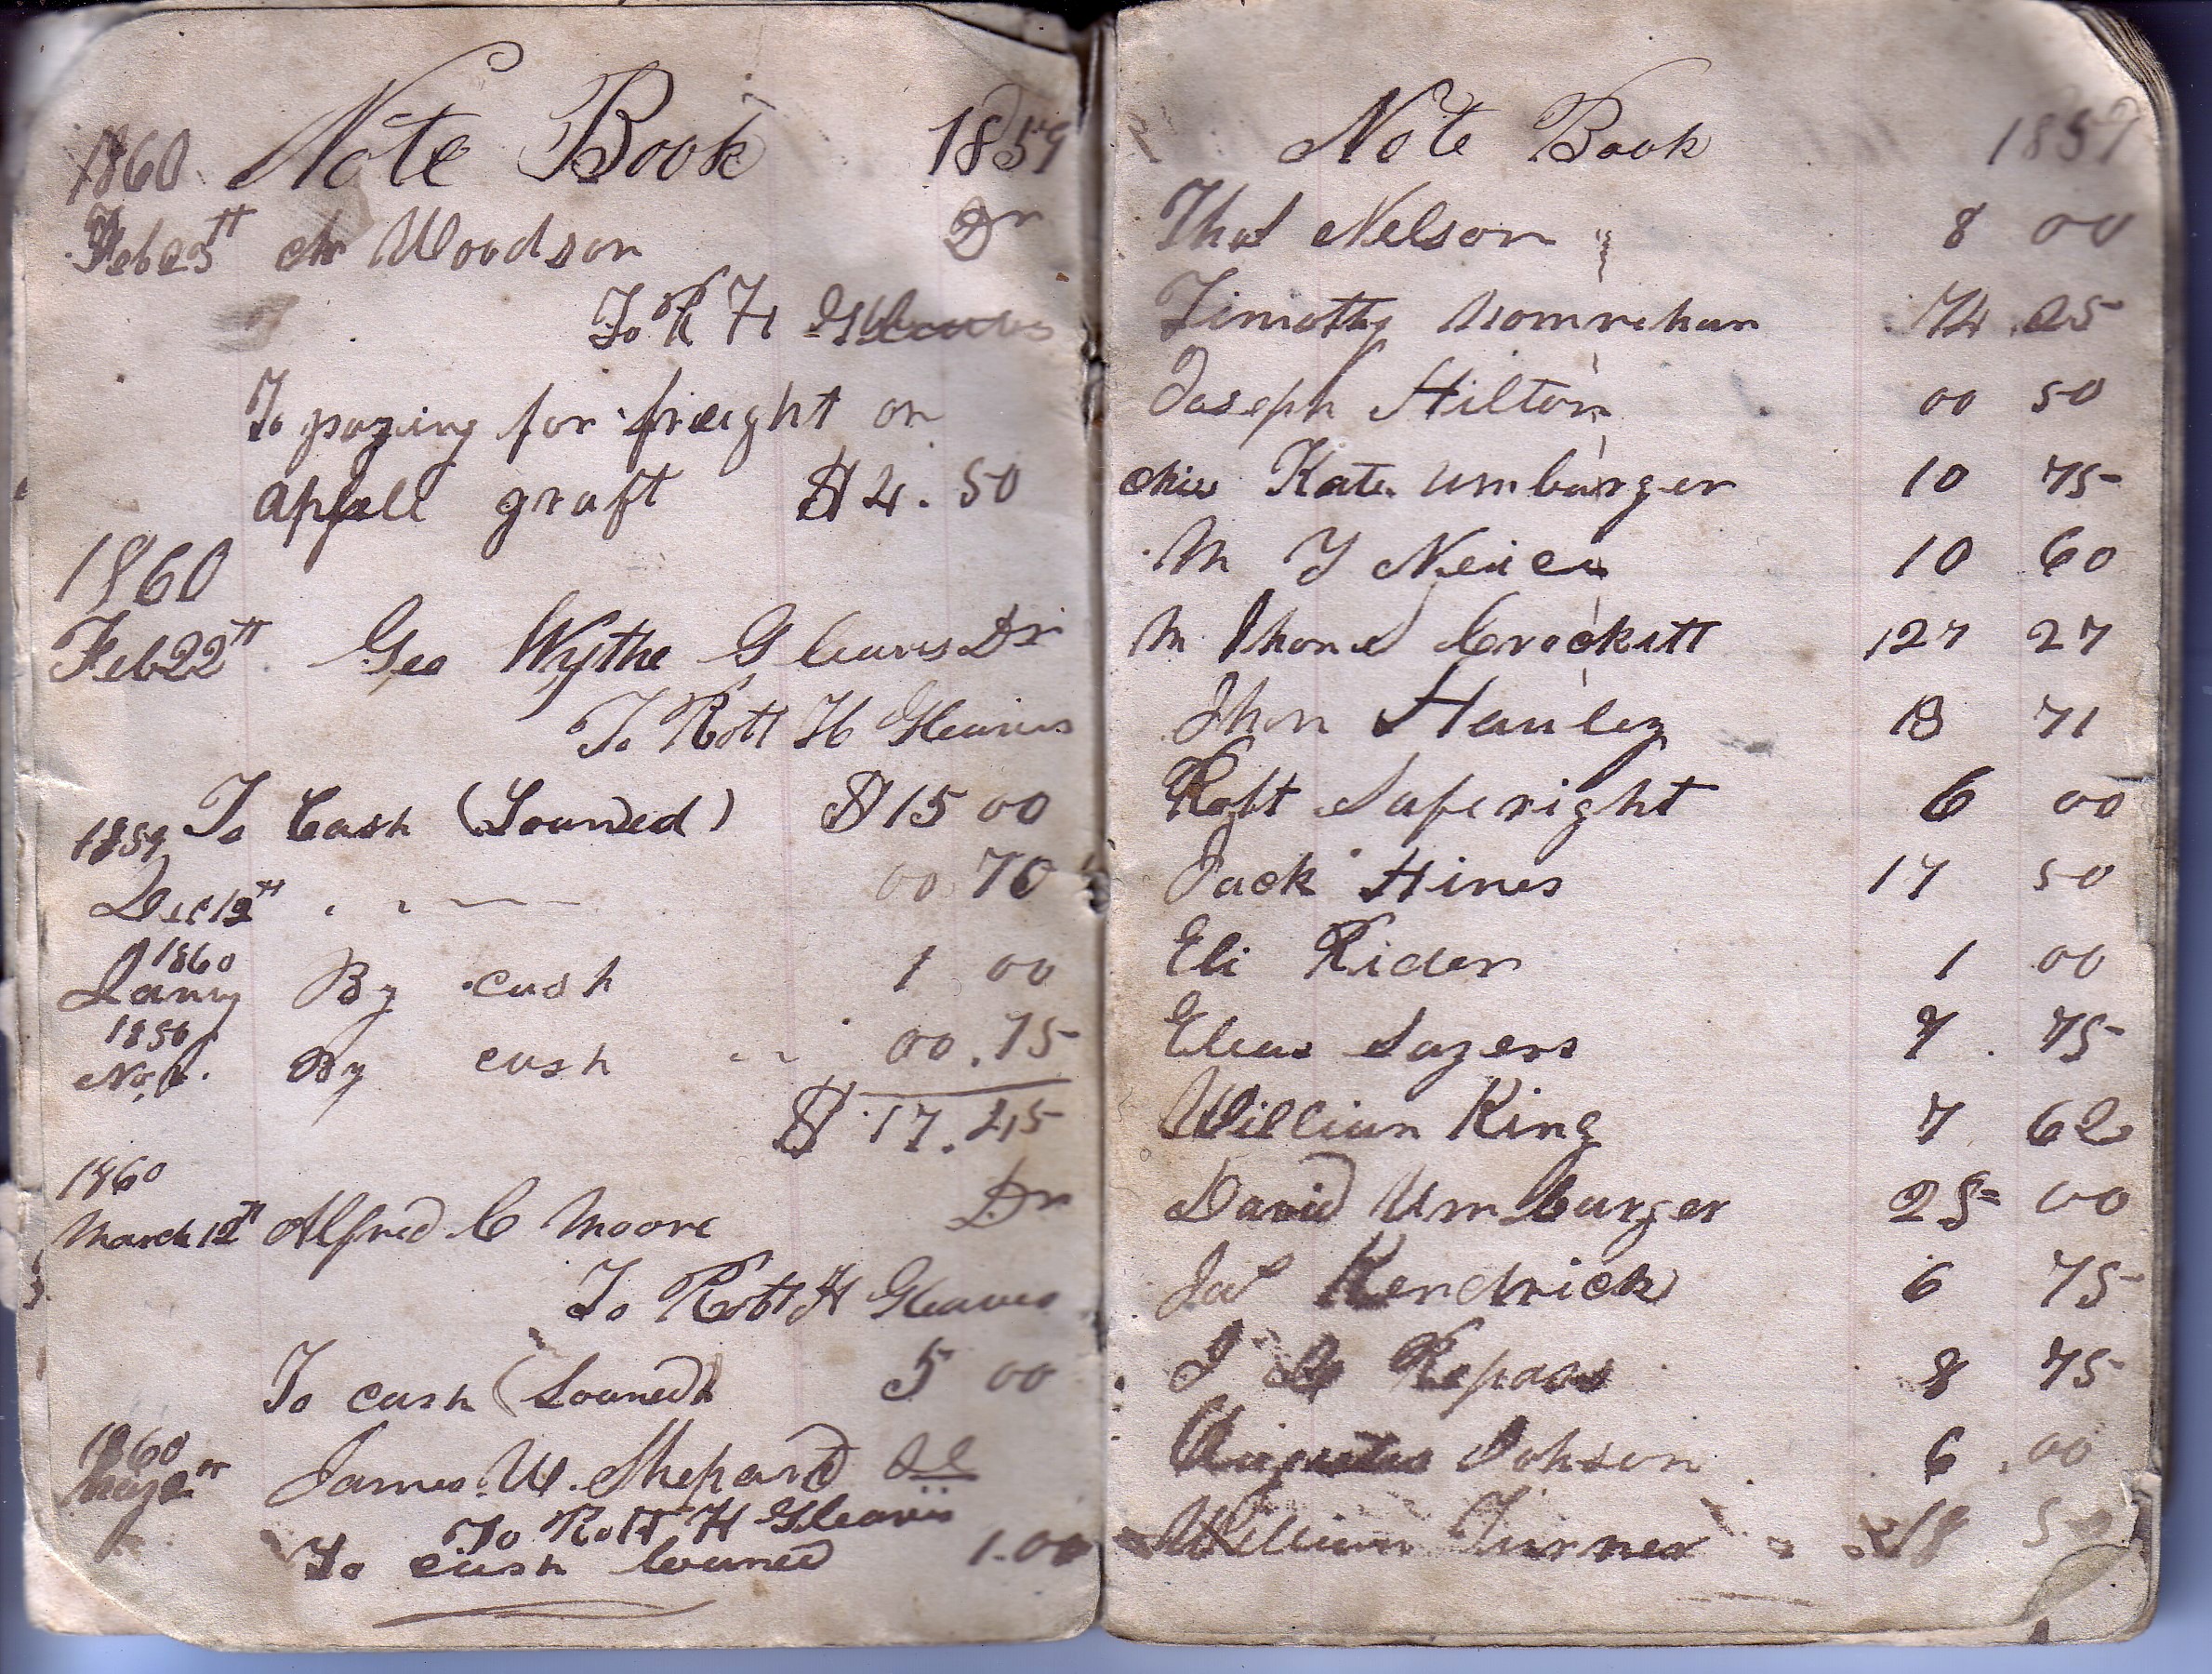 1860 Note Book 1859
Feb 23th Mr Woodson Dr
To R H Gleaves
To paying for freight on
appell graft $4.50
1860
Feb 22th Geo Wythe Gleaves Dr
To Robt H Gleaves
To Cash (Loaned) $15 00
1859
Dec 12th " " — 00 70
1860
Jany By cash 1 00
1856
By cash " " 00.75
$17.45
1860
March 12th Alfred C Moore Dr
To Robt H Gleaves
To cash (Loaned) 5 00
1860
May 2th James W. Shepard
To Robt H Gleaves
To cash loaned 1.00
Note Book 1859
Thos Nelson 8 00
Timothy 74.25
Joseph Hilton 00 50
Miss Kate Umbarger 10 75
M 10 60
M Jhon Crockett 127 27
Jhon Hanley 13 71
Robt Saferight 6 00
Jack Hines 17 50
Eli Rider 1 00
Elias Sazers 7.75
William King 7 62
David Umbarger 25 00
Jas Kendrick 6 75
J Repass 8 75
Augustus Johson 6.00
William Turner 18